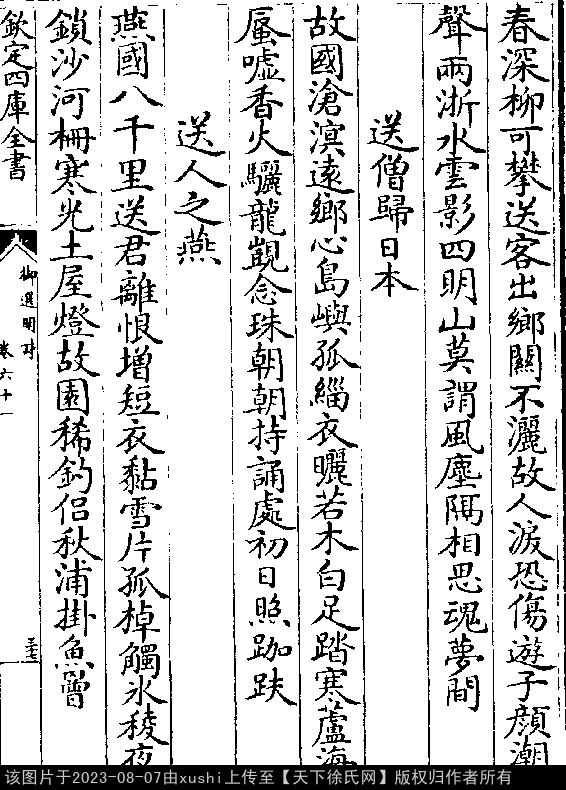 春深柳可攀送客出鄉關不灑故人淚恐傷遊子顔潮
聲兩浙水雲影四明山莫謂風塵隔相思魂夢間
送僧歸日本
故國滄溟逺鄉心島嶼孤緇衣曬若木白足踏寒蘆海
蜃噓香火驪龍觀念珠朝朝持誦處初日照跏趺
送人之燕
燕國八千里送君離恨增短衣黏雪片孤棹觸氷稜夜
鎖沙河柵寒光土屋燈故園稀釣侣秋浦掛魚罾
欽定四庫全書
御選明詩
卷六十一
三十七
该图片于2023-08-07由xushi上传至【天下徐氏网】版权归作者所有